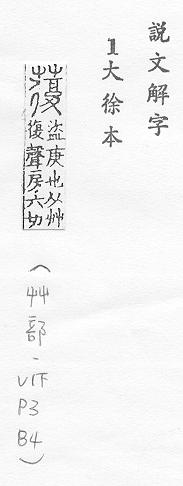 説文解字
1大徐本
蕧
盜庚也从艸
復聲房六切
(艸部、V1下 P3 B4)